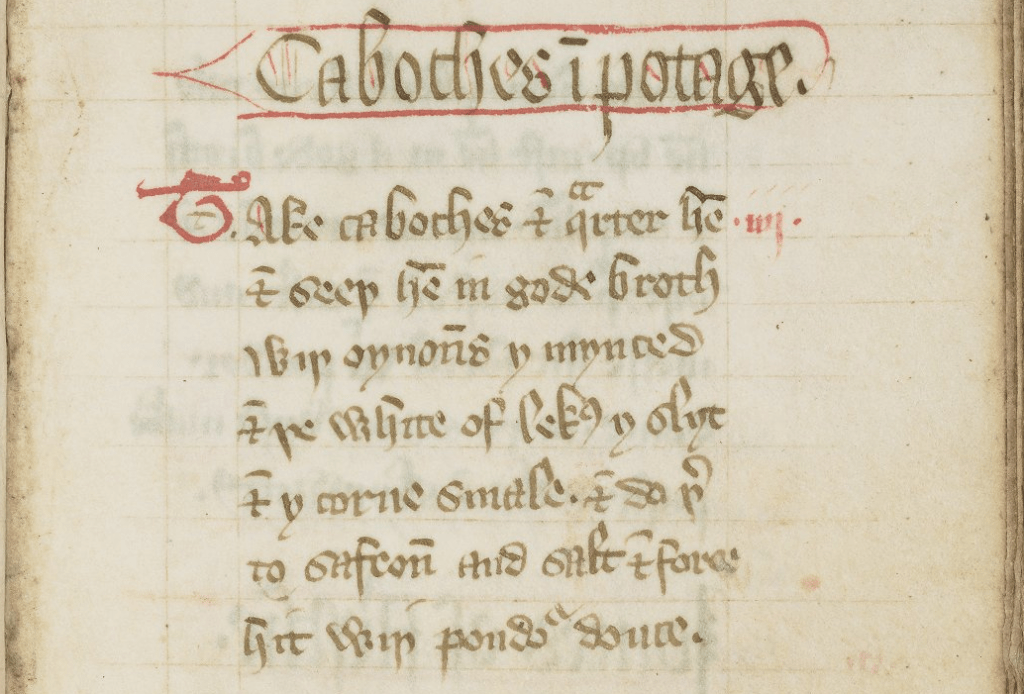 Caboches ī potage.
Take caboches ⁊ qͣrter hē .iiij.
⁊ seeþ hē in gode broth
wiþ oynon̄s y mynced
⁊ þe whīte of lekꝯ y slyt
⁊ y corue smale. ⁊ do þ̉
to safron̄ and salt ⁊ force
hit wiþ poudoͬ douce.